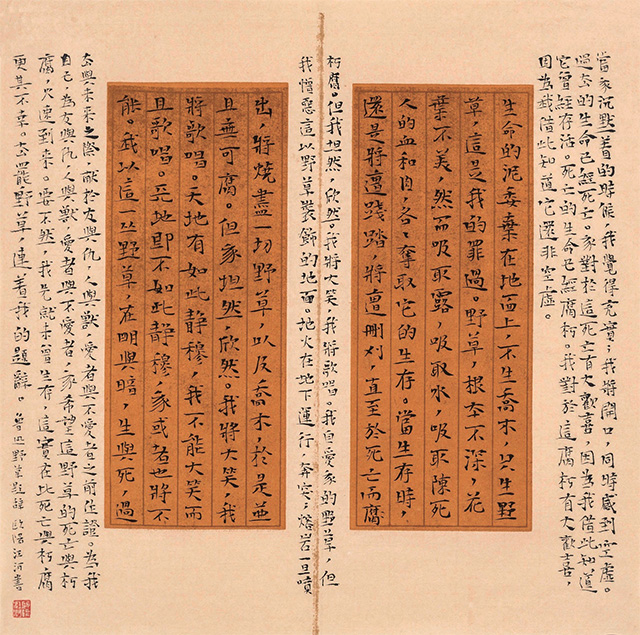 當我沉默着的時候，我覺得充實；我將開口，同時感到空虛。
過去的生命已經死亡。我對於這死亡有大歡喜，因為我借此知道
它曾經存活。死亡的生命已經腐朽。我對於這腐朽有大歡喜，
因為我借此知道它還非空虛。
生命的泥委棄在地面上，不生喬木，只生野
草，這是我的罪過。野草，根本不深，花
葉不美，然而吸取露，吸取水，吸取陳死
人的血和肉，各各奪取它的生存。當生存時，
還是將遭踐踏，將遭刪刈，直至於死亡而腐
朽腐。但我坦然，欣然。我將大笑，我將歌唱。我自愛我的野草，但
我憎惡這以野草裝飾的地面。地火在地下運行，奔突；熔岩一旦噴
出，將燒盡一切野草，以及喬木，於是並
且無可腐。但我坦然，欣然。我將大笑，我
將歌唱。天地有如此静穆，我不能大笑而
且歌唱。天地即不如此静穆，我或者也將不
能。我以這一叢野草，在明與暗，生與死，過
去與未來之際，獻於友與仇，人與獸，愛者與不愛者之前作證。為我
自己，為友與仇，人與獸，愛者與不愛者，我希望這野草的死亡與朽
腐，火速到來。要不然，我先就未曾生存，這實在比死亡與朽腐
更其不幸。去罷，野草，連着我的題辭。魯迅野草題辭 歐陽江河書